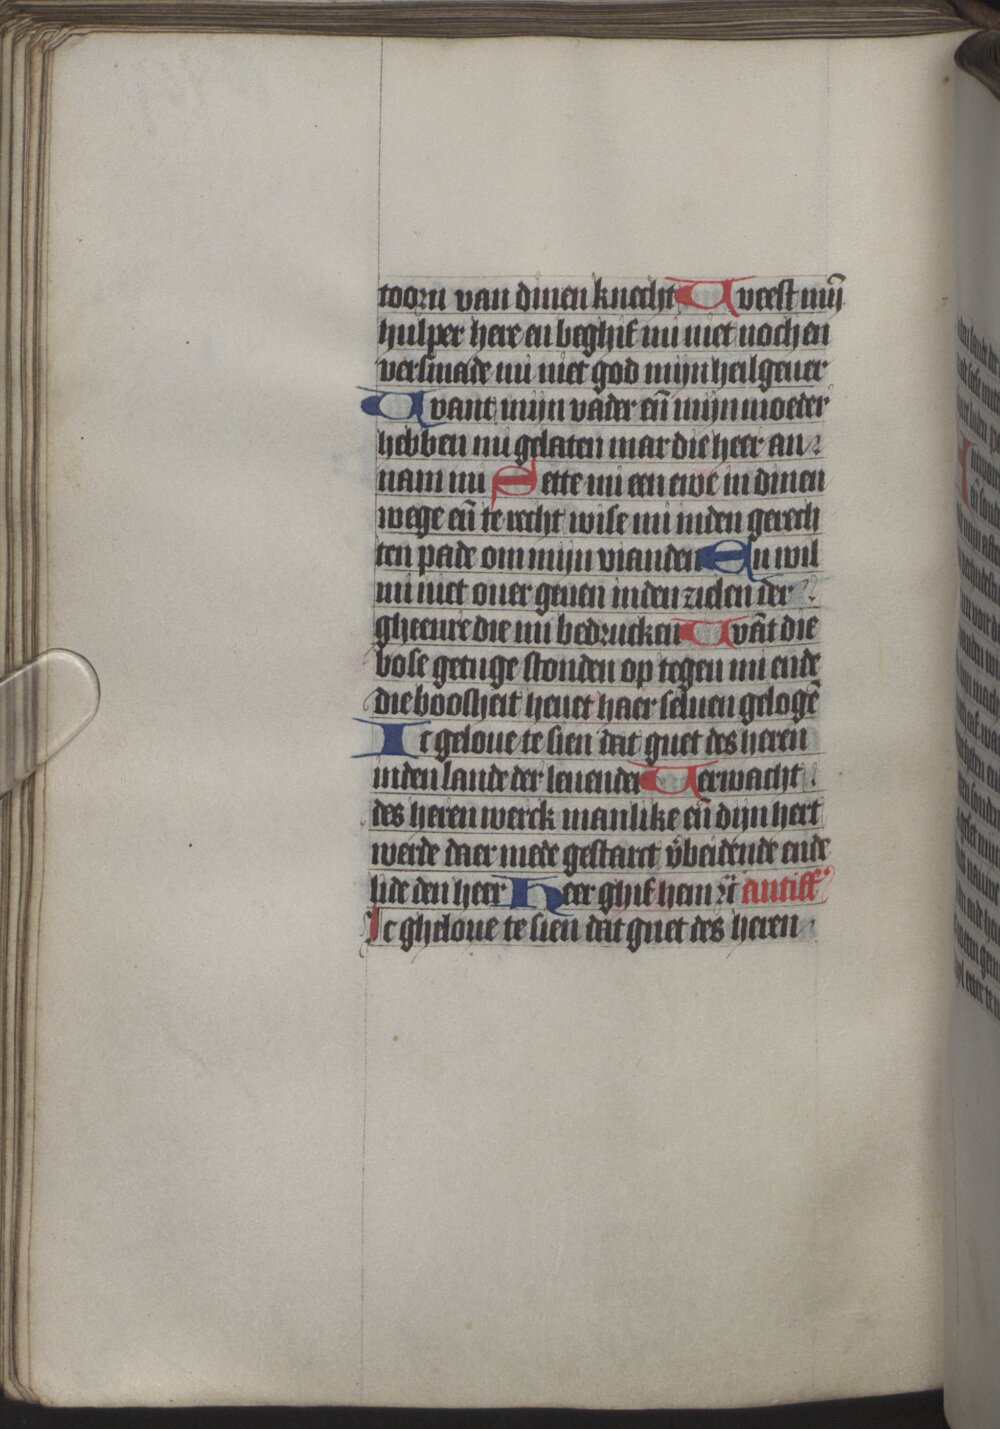 toorn van dinen knecht Weest mij
hulper here en beghif mi niet noch en
versmade mi niet god mijn heilgeuer
Want mijn vader eñ mijn moeder
hebben mi gelaten mar die heer an
nam mi Sette mi een ewe in dinen
wege eñ te recht wise mi inden gerech
ten pade om mijn vianden En wil
mi niet ouer geuen inden zielen der
gheenre die mi bedrucken Wãt die
bose getuge stonden op tegen mi ende
die boosheit heuet haer seluen gelogẽ
Ic geloue te sien dat guet des heren
inden lande der leuender Verwacht
des heren werck manlike eñ dijn hert
werde daer mede gestarct v̄beidende ende
lide den heer Heer ghif hem rc̃ antiff
Ic gheloue te sien dat guet des heren